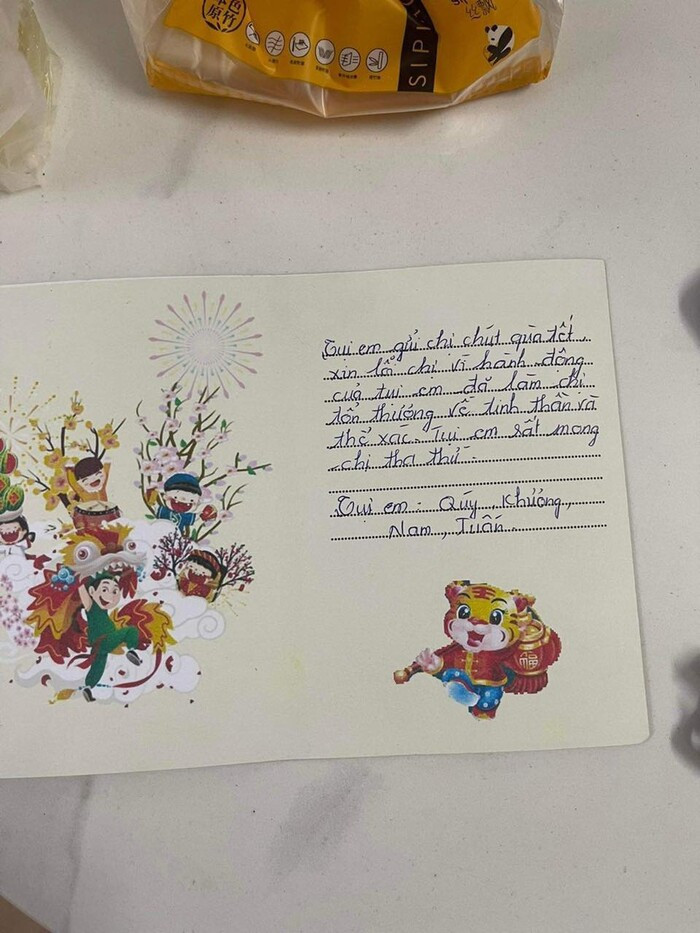 SIPI
Tụi em gửi chị chút quà tết,
xin lỗi chị vì hành động
của tụi em đã làm chị
tổn thương về tinh thần và
thể xác. Tụi em rất mong
chị tha thứ
Tụi em: Qúy, Khương,
Nam, Tuấn
福